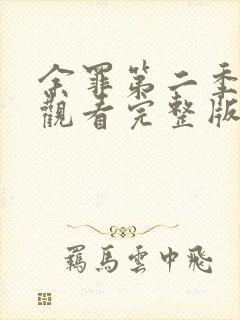 余罪第二季
觀看完整版
羈馬雲中飛